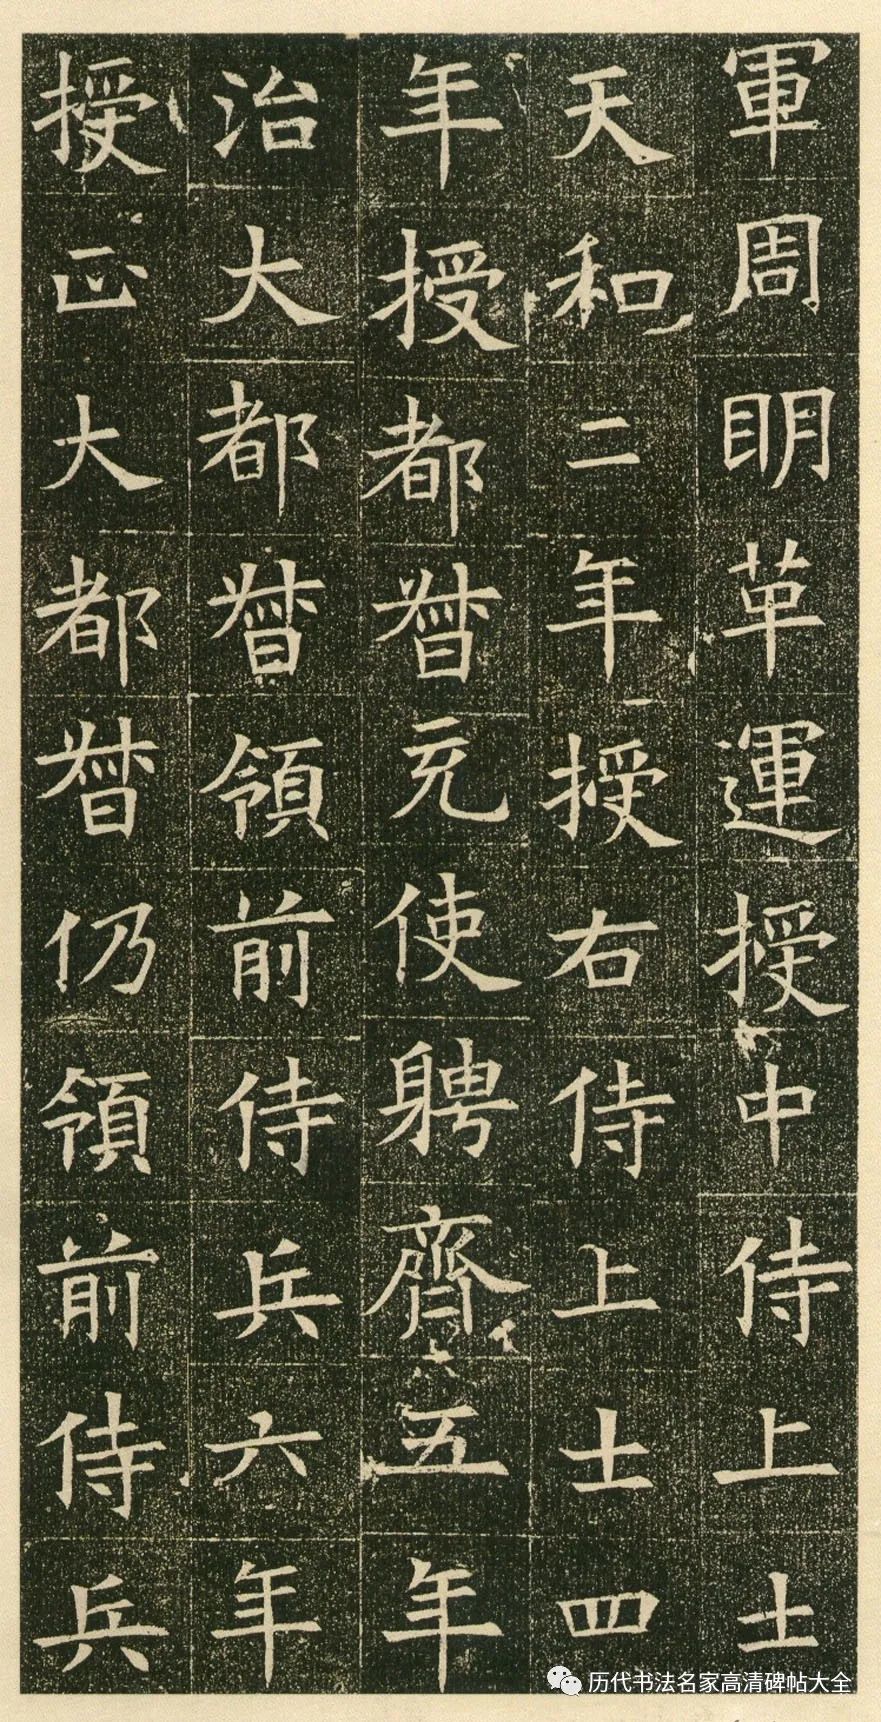 軍周明革運授中侍上士
天和二年授右侍上士四
年授都督充使聘齊五年
治大都督領前侍兵六年
授正大都督仍領前侍兵
历代书法名家高清碑帖大全